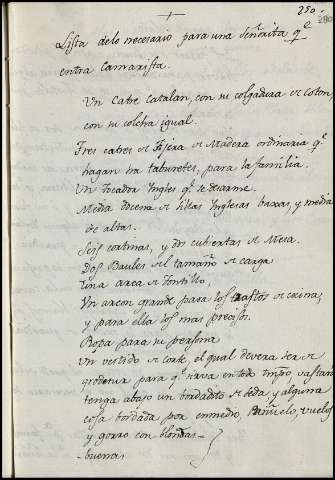 250.
280
Lista de lo necesario para una Señorita q.e
entra Camarista.
Un Catre Catalan, con su colgadura de coton
con su colcha igual.
Tres catres de tijera de Madera ordinaria q.e
hagan de taburetes, para la familia.
Un tocador Ingles q.e se desarme.
Media docena de sillas Inglesas baxas, y media
de altas.
Seis cortinas, y dos cubiertas de Mesa.
Dos Baules del tamaño de carga
Una arca de tontillo.
Un arcon grande para los trastos de cocina,
y para ella los mas precisos.
Ropa para su persona
Un vestido de corte, el qual devera ser de
grodetur para q.e sirva en todo tmpo, vastara
tenga abajo un bordadito de seda y alguna
cosa bordada por enmedio, Pañuelo, vuelos
y gorro con blondas
buenas